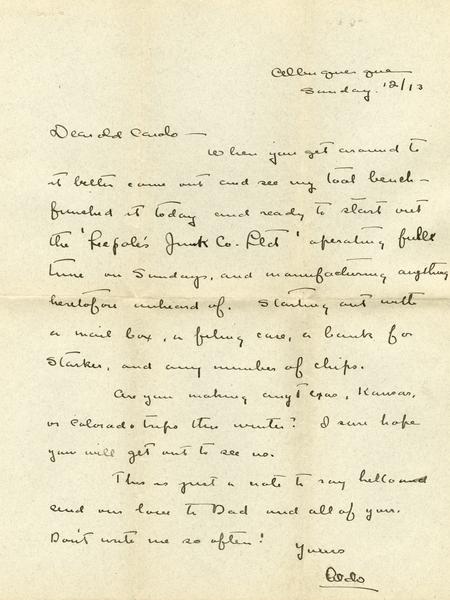 Albuquerque
Sunday 12/13
Dear old Carolo —
When you get around to
it better come out and see my tool bench —
finished it today and ready to start out
the 'Leopole's Junk Co. Ltd' operating full
time on Sundays, and manufacturing anything
heretofore unheard of. Starting out with
a mail box, a filing case, a bunk for
Starker, and any number of chips.
Are you making any Texas, Kansas,
or Colorado trips this winter? I sure hope
you will get out to see us.
This is just a note to say hello and
send our love to Dad and all of you.
Don't write me so often!
Yours
Aldo